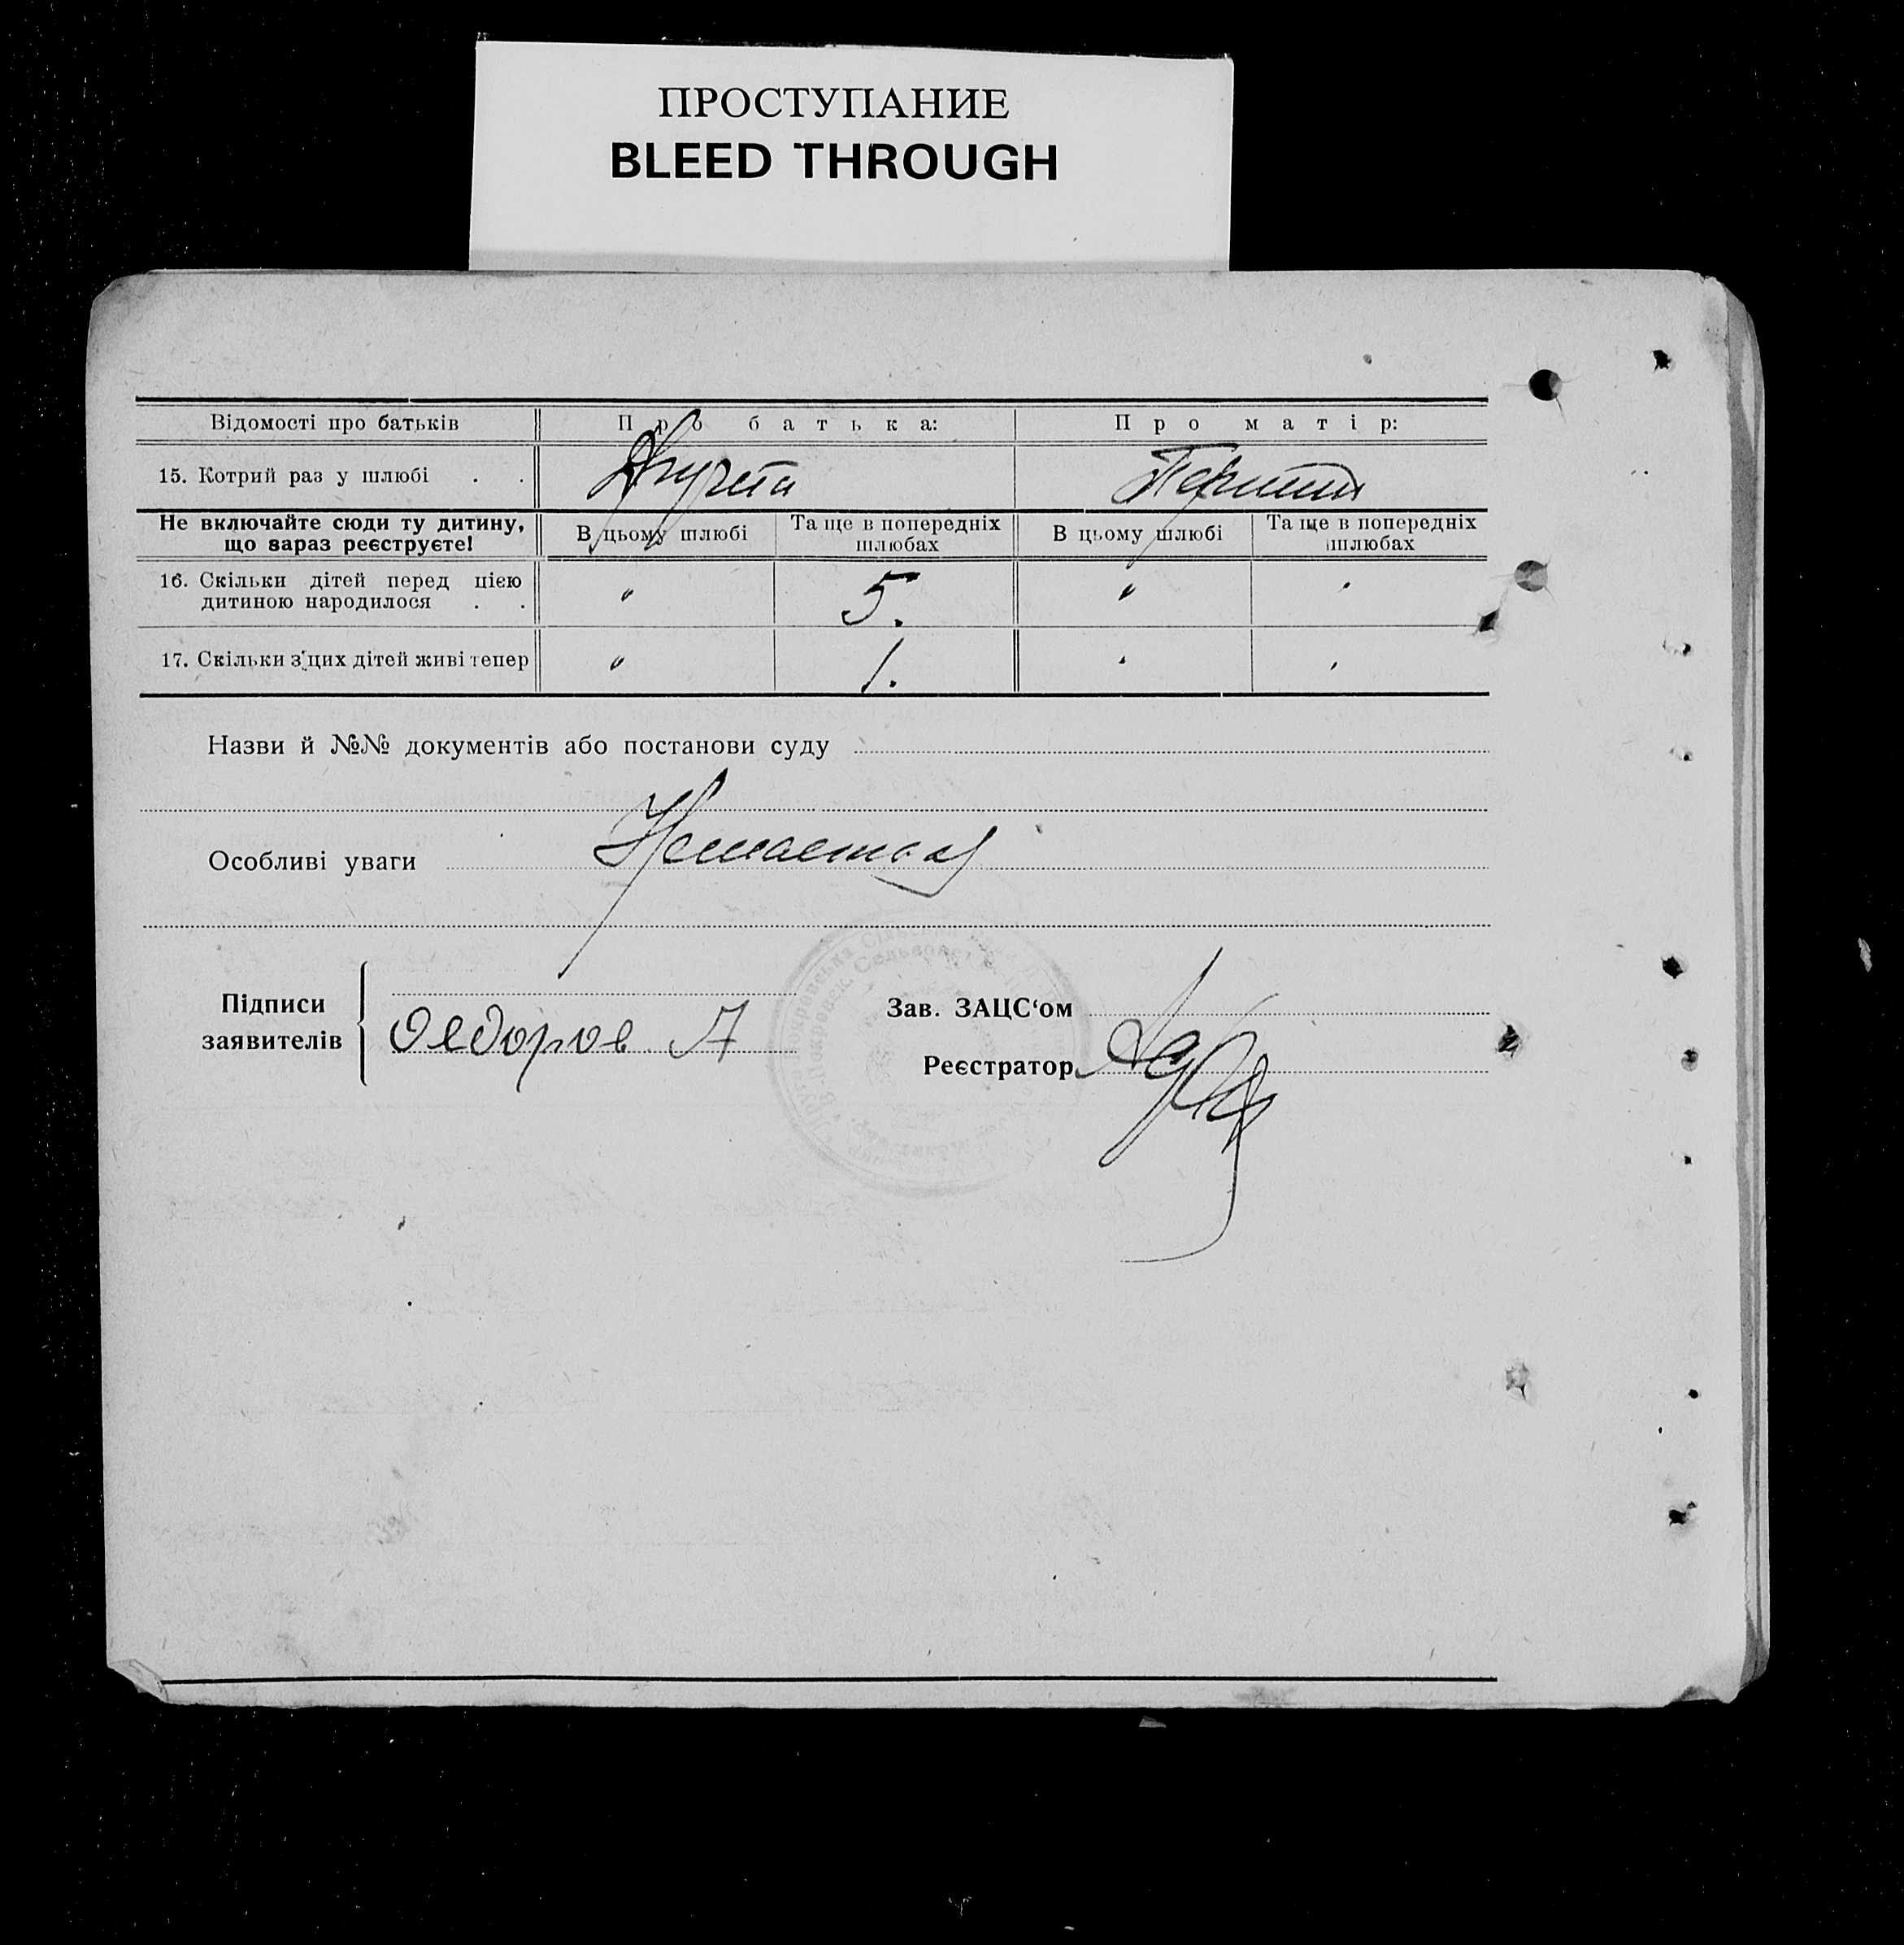 ПРОСТУПАНИЕ
BLEED THROUGH
Відомості про батьків Про батька: Про матір:
15. Котрий раз у шлюбі . .
Не включайте сюди ту дитину, що зараз реєструєте! В цьому шлюбі Та ще в попередніх шлюбах В цьому шлюбі Та ще в попередніх шлюбах
16. Скільки дітей перед цією дитиною народилося . . " 5. "
17. Скільки з цих дітей живі тепер " 1.
Назви й №№ документів або постанови суду
Особливі уваги
Підписи заявителів
Федоров А
Зав. ЗАЦС‘ом
Реєстратор